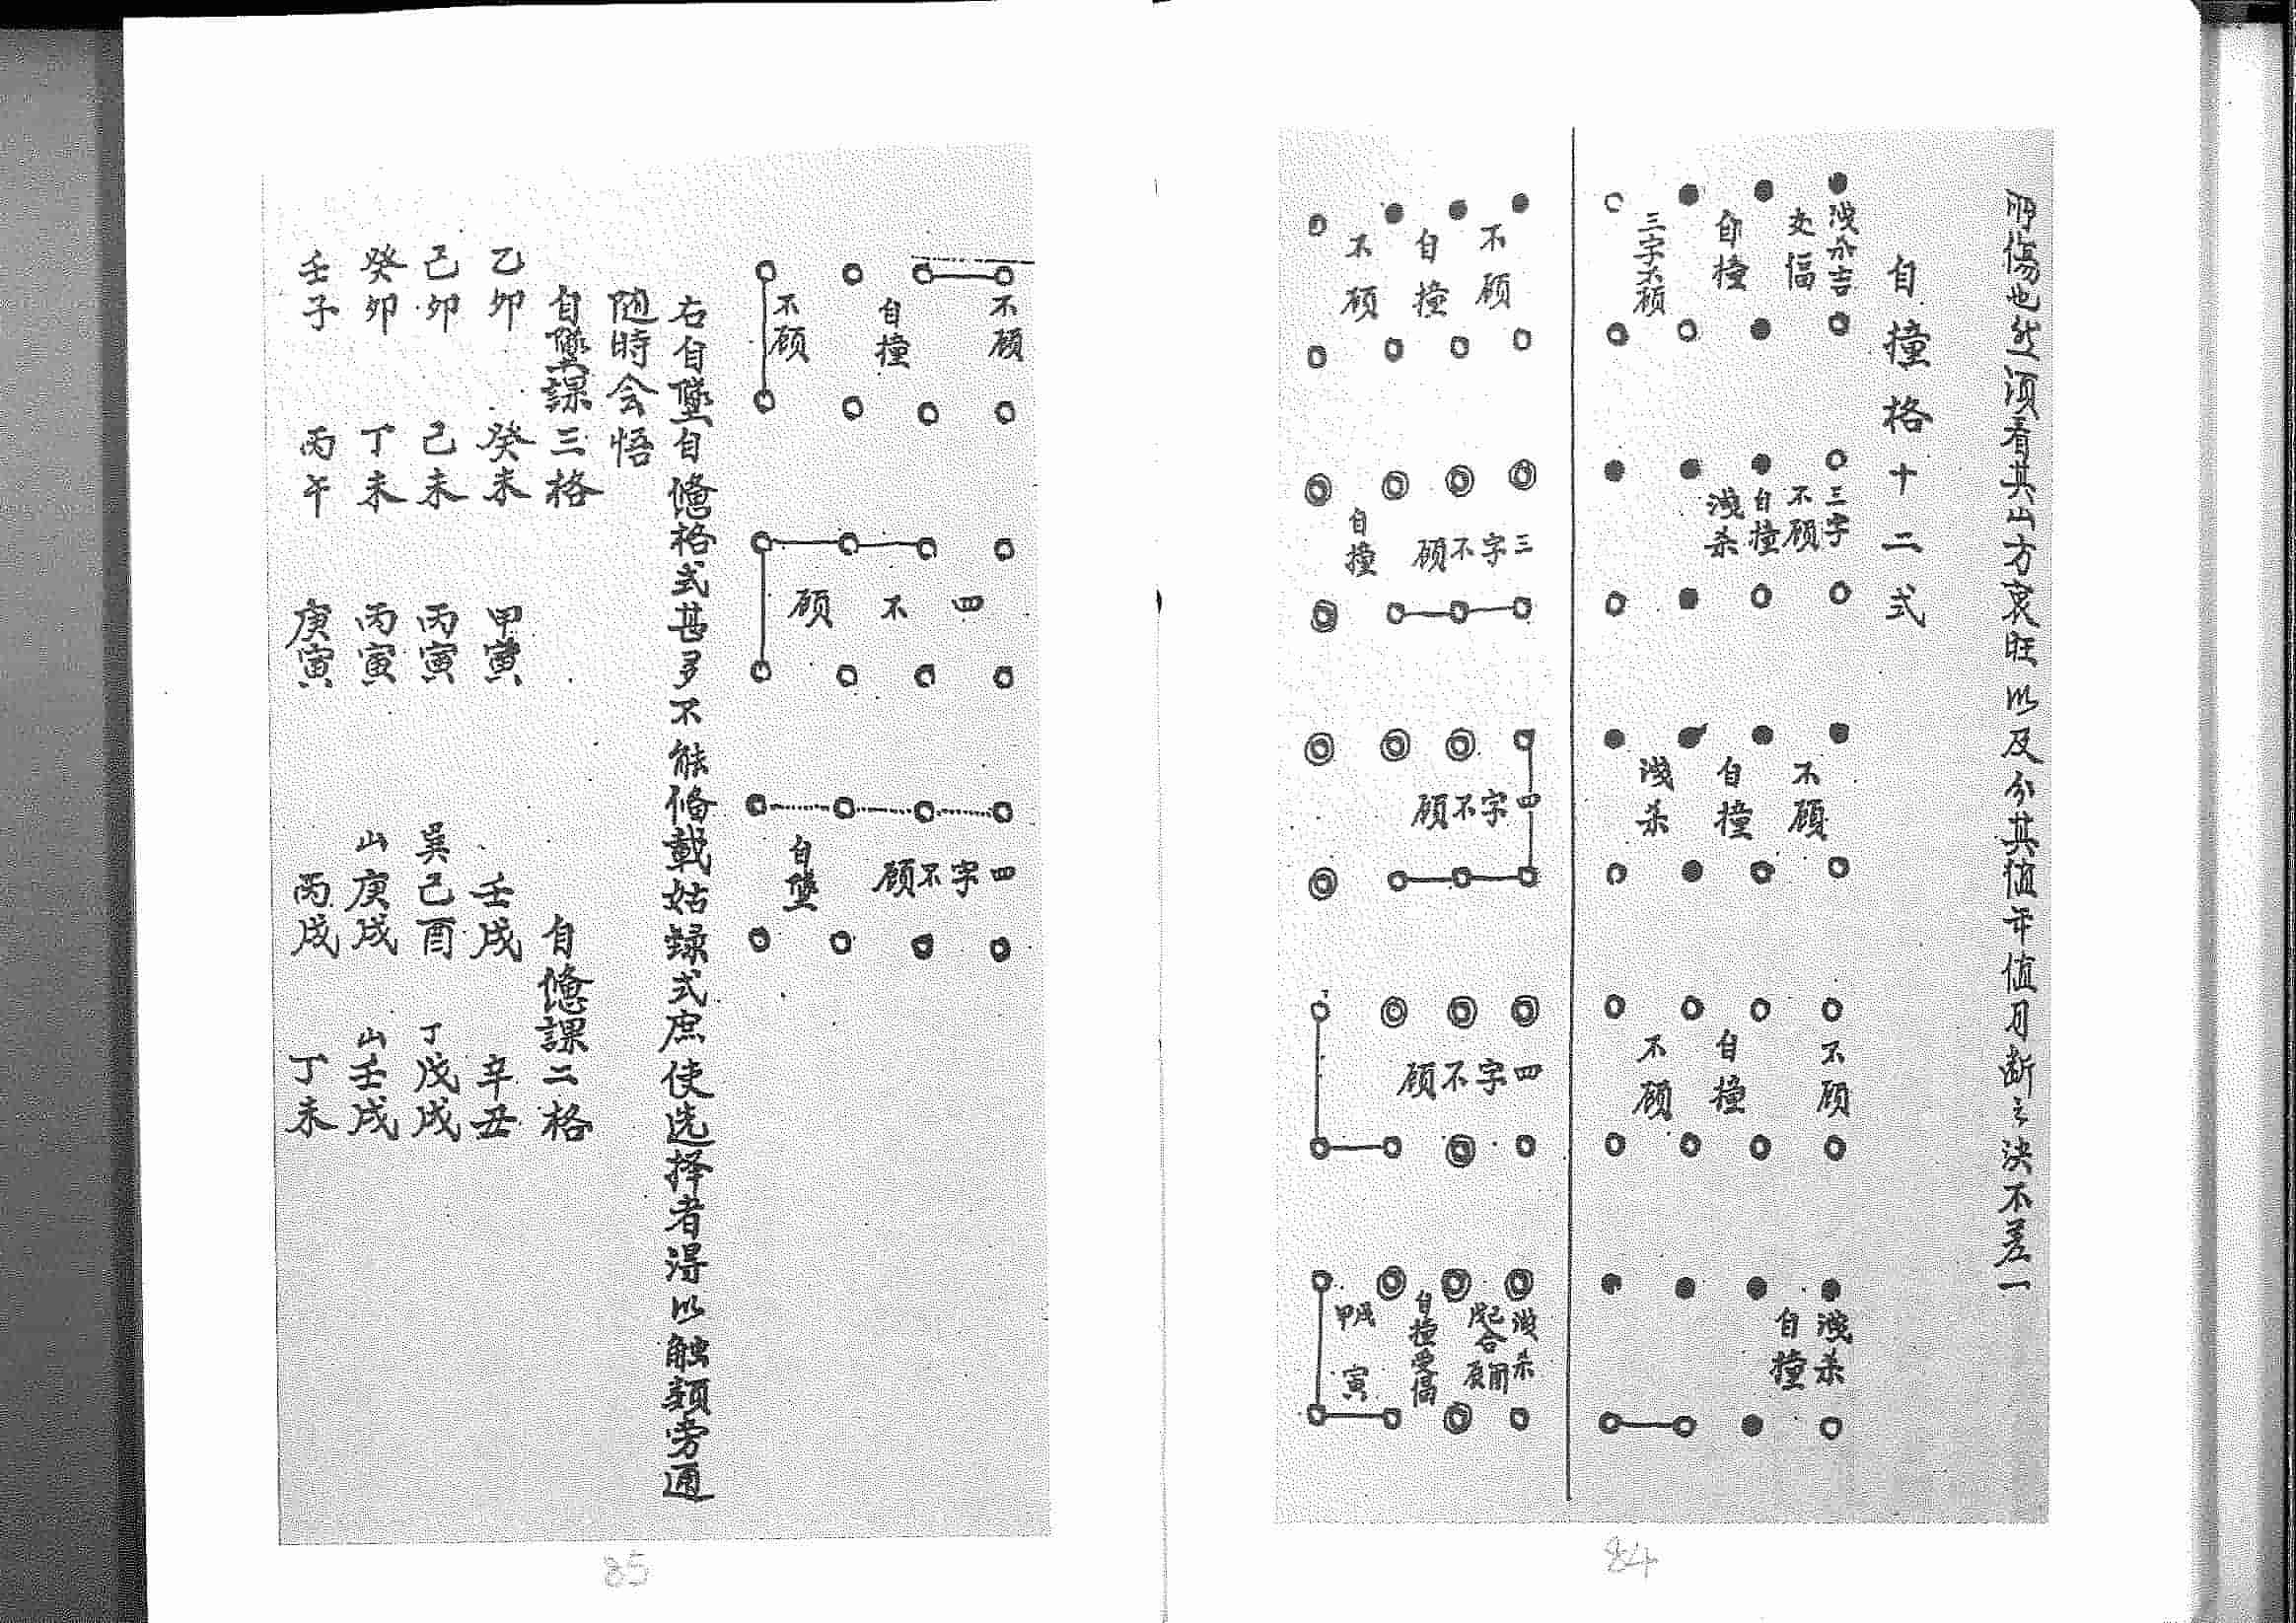 所傷也然须看其山方衰旺以及分其值年值月断之决不差一
自撞格十二式
浅杀吉
交偪
自撞
三字不顾
三字
不顾
自撞
浅杀
不顾
自撞
浅杀
不顾
自撞
不顾
浅杀
自撞
不顾
自撞
不顾
三字不顾
自撞
四字不顾
四字不顾
浅杀
自撞受偪
甲戌
寅
84
不顾
自撞
不顾
四不顾
四字不顾
自墜
右自墜自憶格式甚多不能俻載姑録式庶使选择者得以触類旁通
随時会悟
自墜課三格
自憶課二格
乙卯 癸未 甲寅 壬戌 辛丑
己卯 己未 丙寅 巽己酉 丁戊戌
癸卯 丁未 丙寅 山庚戌 山壬戌
壬子 丙午 庚寅 丙戌 丁未
85